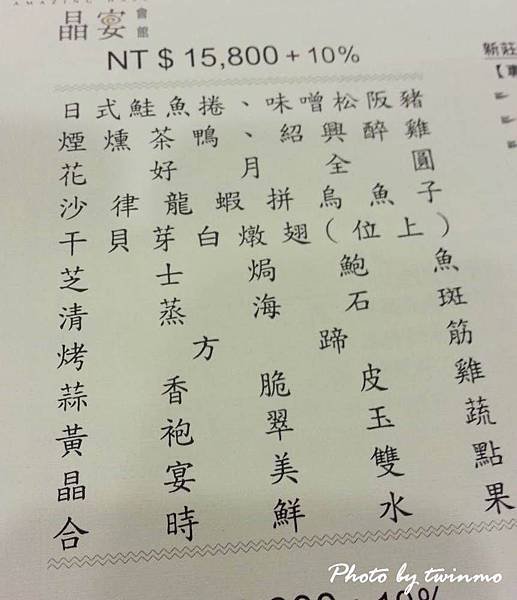 AMAZING HALL
晶宴會館
NT $ 15,800 + 10%
新莊
日式鮭魚捲、味噌松阪豬
煙燻茶鴨、紹興醉雞
花好月全圓
沙律龍蝦拼烏魚子
干貝芽白燉翅(位上)
芝士焗鮑魚
清蒸海石斑
烤方蹄筋
蒜香脆皮雞
黃袍翠玉蔬
晶宴美雙點
合時鮮水果
Photo by twinmo